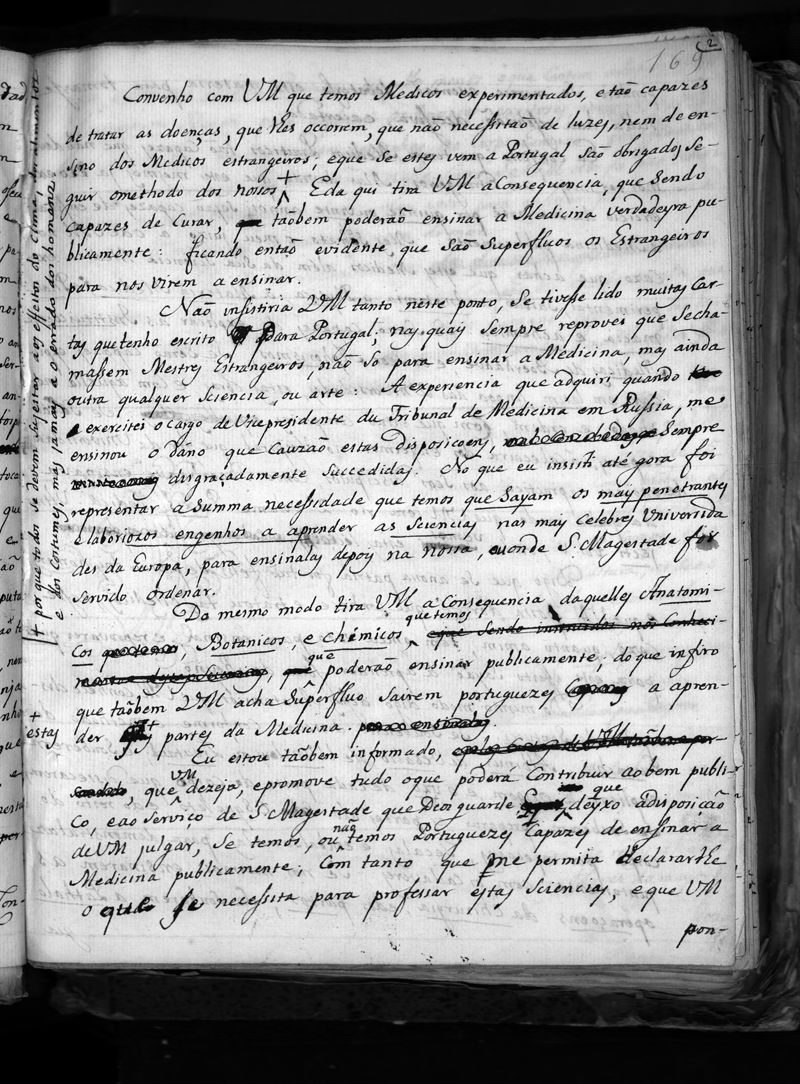 169
2
Convenho com VM que temos Medicos experimentados, e taõ capazes
de tratar as doenças, que lhes occorrem, que não necessitaõ de luzes, nem de en-
sino dos Medicos estrangeiros; eque se estes vem a Portugal saõ obrigados se-
guir omethodo dos nossos + Eda qui tira VM aConsequencia, que sendo
capazes de Curar, taõbem poderaõ ensinar a Medicina verdadeyra pu-
blicamente: ficando entaõ evidente, que saõ superfluos os Estrangeiros
para nos virem a ensinar.
Não insistiria VM tanto neste ponto, se tivesse lido muitas Car-
tas quetenho escrito para Portugal; nas quays sempre reprovei que secha-
massem Mestres Estrangeiros, não so para ensinar a Medicina, mas ainda
outra qualquer sciencia, ou arte: A experiencia que adquiri quando
exercitei o cargo de Vicepresidente du Tribunal de Medicina em Russia, me
ensinou o dano que Cauzaõ estas disposicoens, sempre
disgraçadamente succedidas. No que eu insisti até gora foi
representar a summa necessidade que temos que sayam os mays penetrantes
e laboriozos engenhos a aprender as sciencias nas mays celebres Universida
des da Europa, para ensinalas depoys na nossa, onde S. Magestade for
servido ordenar.
Do mesmo modo tira VM a Consequencia daquelles Anatomi-
cos, Botanicos, e chémicos que temos
que poderaõ ensinar publicamente: do que infiro
que taõbem VM acha superfluo sairem portuguezes a apren-
der + partes da Medicina.
+
estas
Eu estou taõbem informado,
que VM dezeja, epromove tudo oque poderá Contribuir aobem publi-
co, eao serviço de S. Magestade que Deos guarde que deyxo adisposiçaõ
deVM julgar, se temos, ou não temos Portuguezes Capazes de ensinar a
Medicina publicamente; Com tanto que me permita declararlhe
o que se necessita para professar estas sciencias, e que VM
pon-
+ porque todos se devem sujeitar aos effeitos do Clima, dos alimentos
e dos Costumes, mas jamays a o errado dos homens.